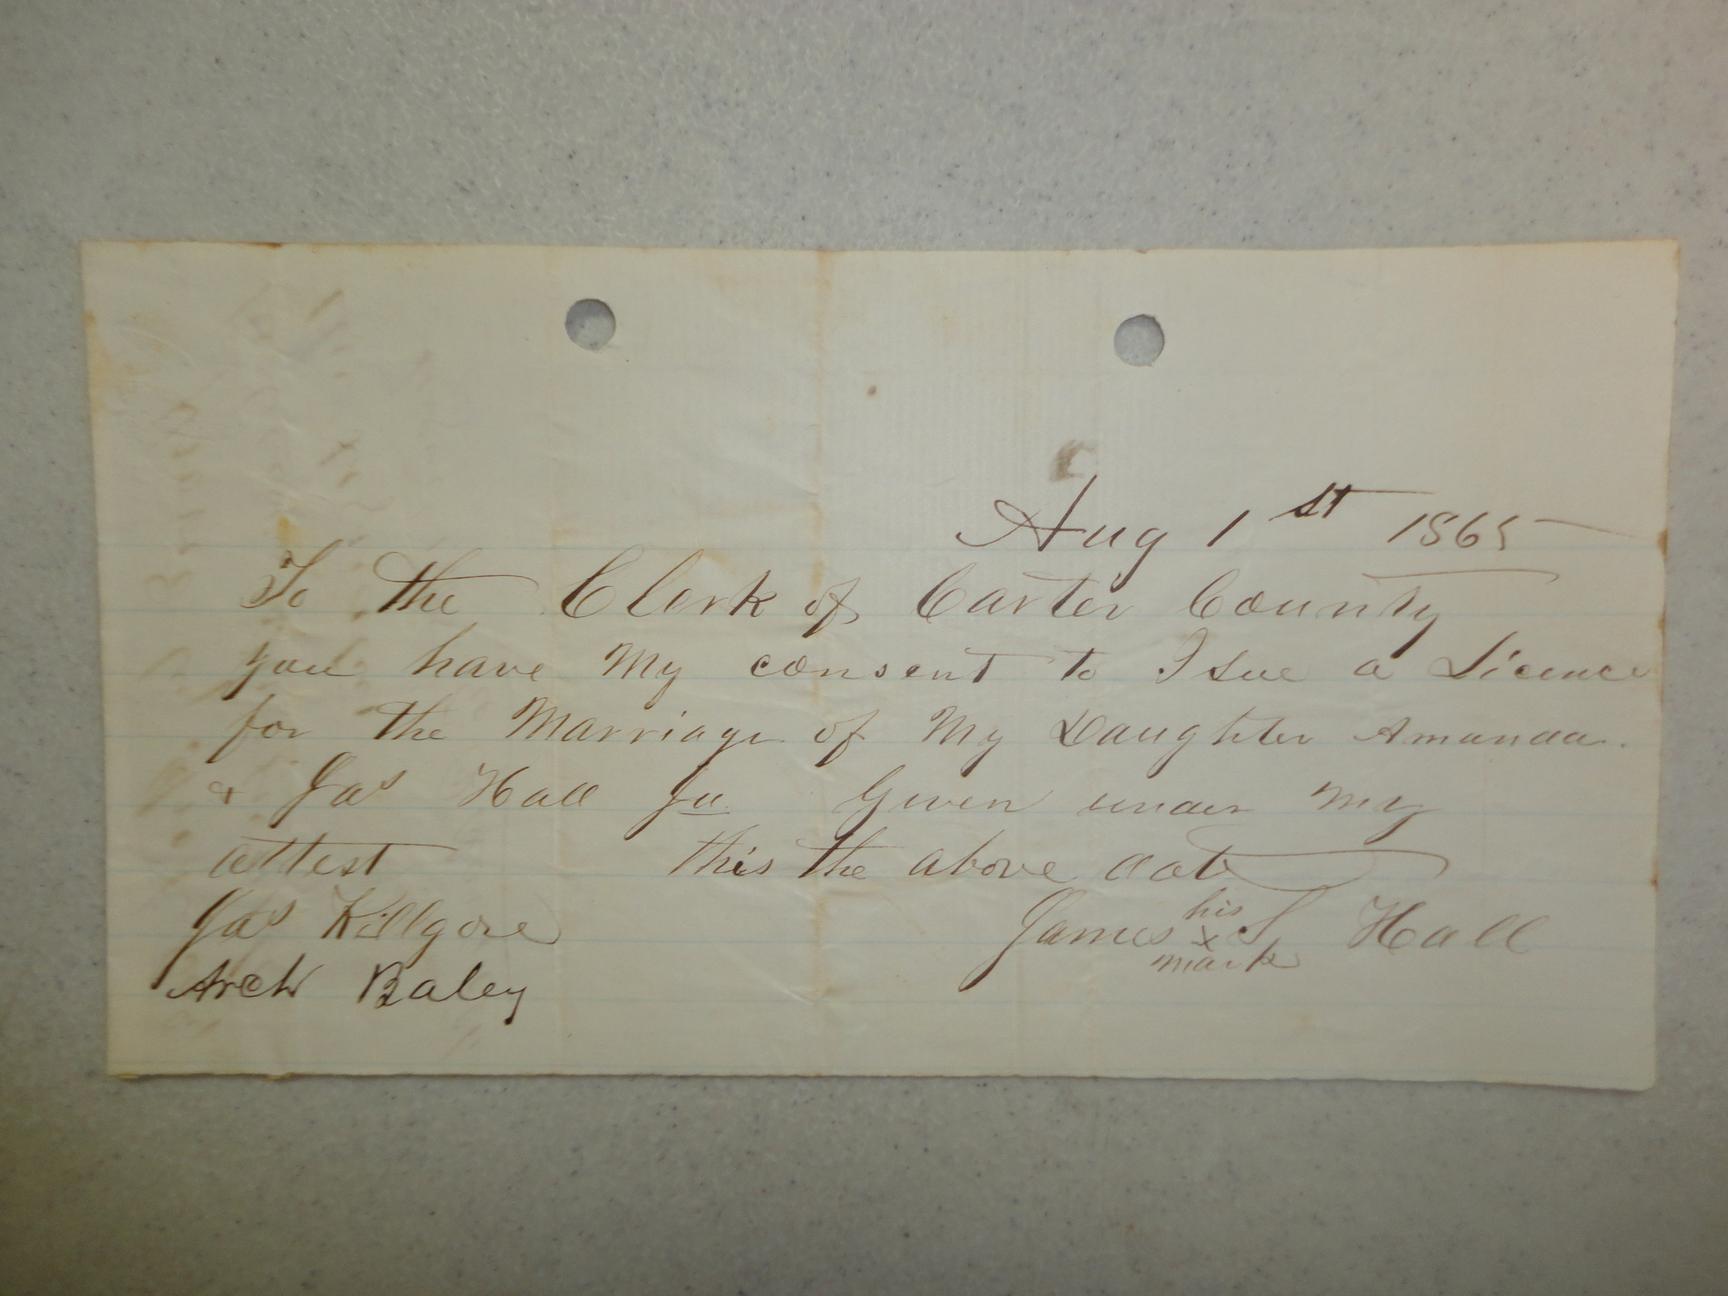 Aug 1st 1865
To the Clerk of Carter County
you have My consent to Isue a Licence
for the Marriage of My Daughter Amanda.
& Jas Hall Ju Given under My
attest this the above date
Jas Killgore James his x mark S Hall
Arch Baley